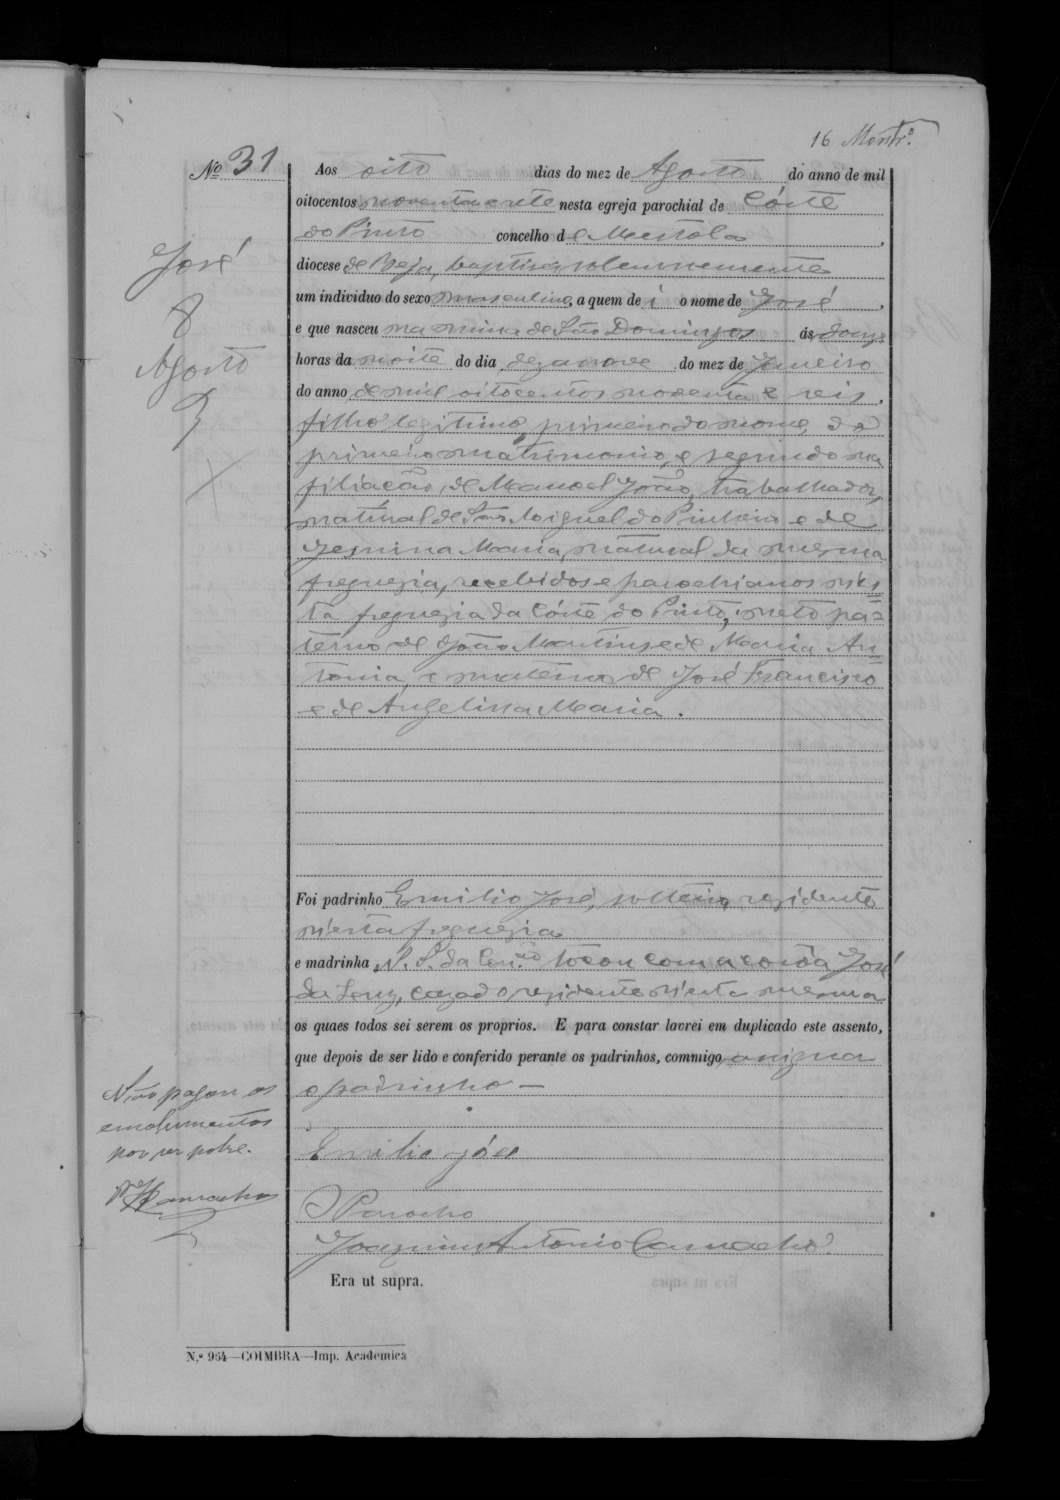 16
Nº 31
José
8
Agosto
Aos oito dias do mez de Agosto do anno de mil
oitocentos noventa e sete nesta egreja parochial de Córte
do Pinto concelho de Mertola,
diocese de Beja, baptisei solemnemente
um individuo do sexo masculino, a quem dei o nome de José,
e que nasceu na mina de São Domingos ás doze
horas da noite do dia dezanove do mez de Janeiro
do anno de mil oitocentos noventa e seis,
filho legitimo, primeiro do nome, do
primeiro matrimonio, e segundo na
filiação, de Manoel João, trabalhador,
natural de São Miguel do Pinheiro e de
Maria, natural da mesma
freguezia, recebidos e parochianos n'es=
ta freguezia da Córte do Pinto, neto pa=
terno de João Martins e de Maria An=
tonia, e materno de José Francisco
e de Angelina Maria.
Foi padrinho Emilio José, solteiro, residente
n'esta freguezia
e madrinha N. S. da Con.ção tocou com a corôa José
da Luz, cazado residente n'esta mesma
os quaes todos sei serem os proprios. E para constar lavrei em duplicado este assento,
que depois de ser lido e conferido perante os padrinhos, commigo assigna
o padrinho —
Emilio José
O Parocho
Joaquim Antonio Camacho
Era ut supra.
Não pagou os
emolumentos
por ser pobre.
Camacho
N.º 954—COIMBRA—Imp. Academica